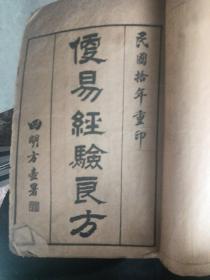 民國拾年重印
便易經驗良方
四明方壺署